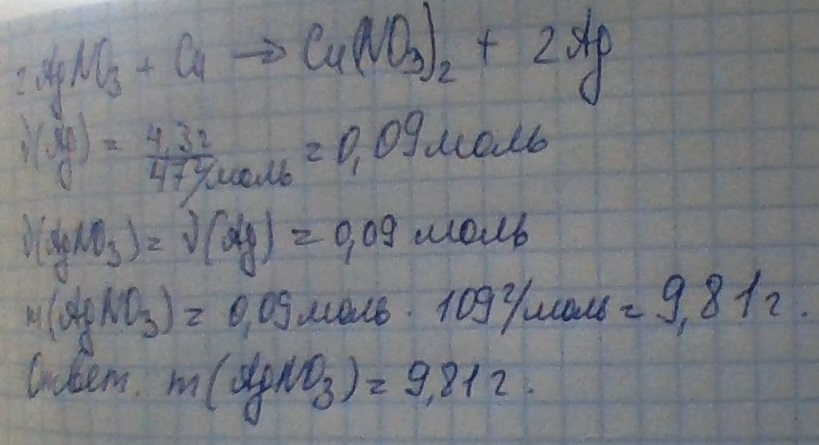 2AgNO₃ + Cu → Cu(NO₃)₂ + 2Ag
ν(Ag) = 4,3г / 47г/моль = 0,09 моль
ν(AgNO₃) = ν(Ag) = 0,09 моль
m(AgNO₃) = 0,09 моль · 109 г/моль = 9,81 г.
Ответ. m(AgNO₃) = 9,81 г.